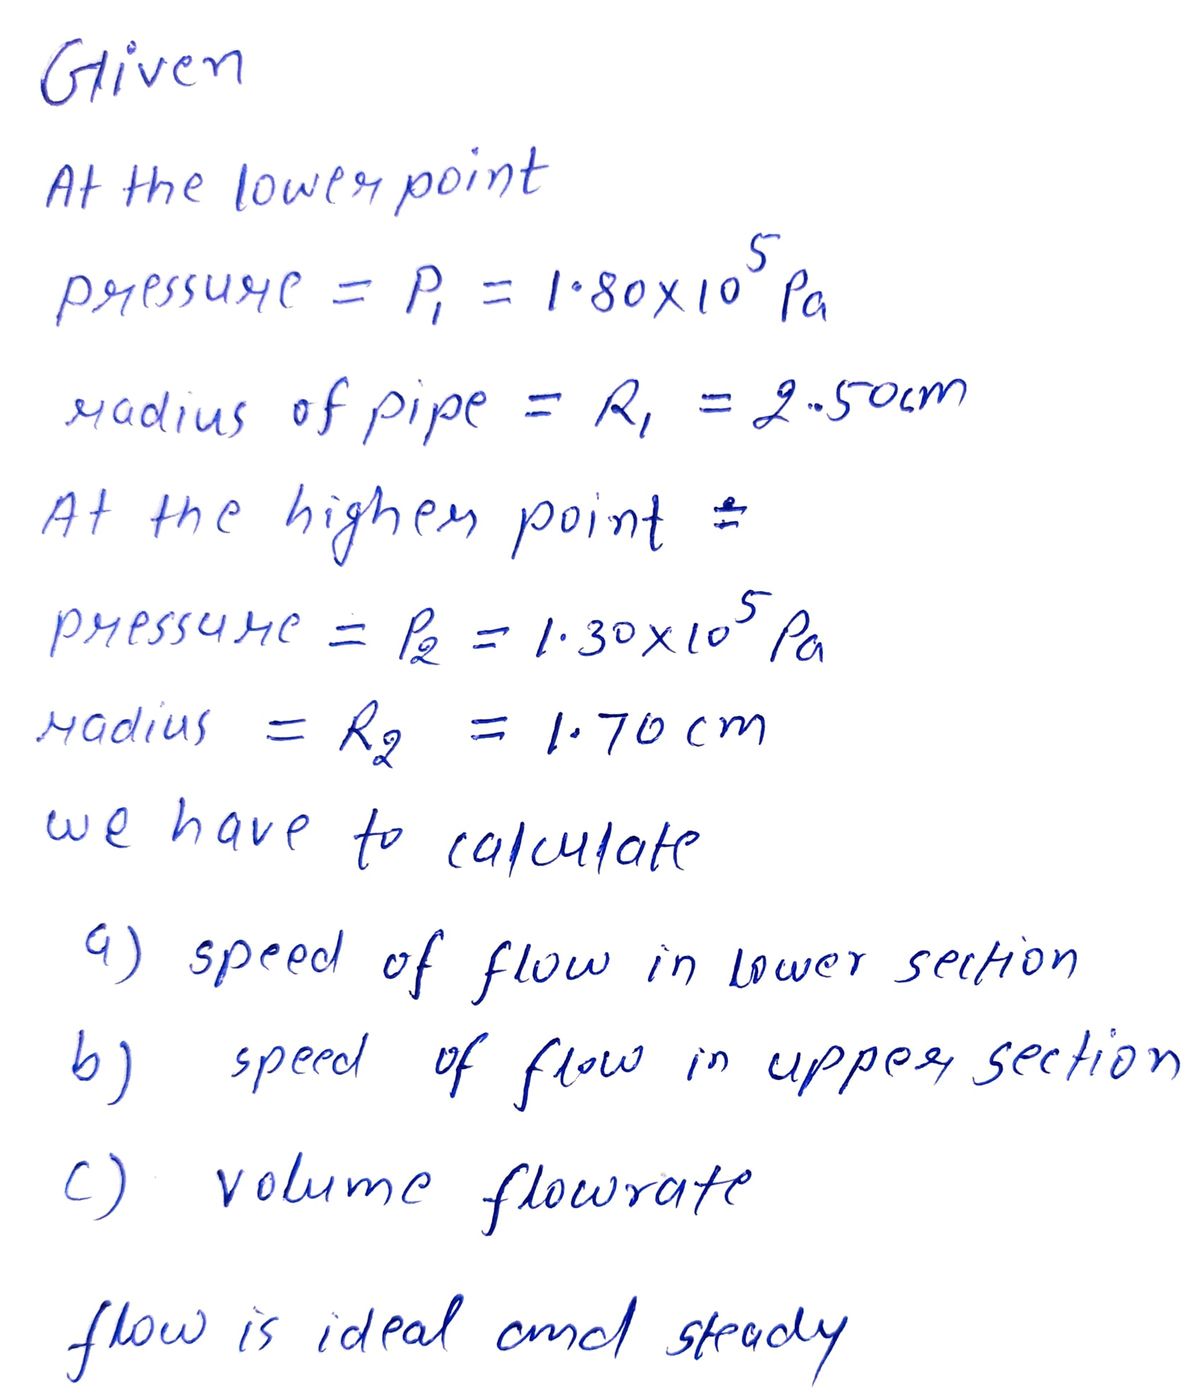 Given
At the lower point
pressure = P₁ = 1.80×10⁵ Pa
radius of pipe = R₁ = 2.50cm
At the higher point =
pressure = P₂ = 1.30×10⁵ Pa
radius = R₂ = 1.70 cm
we have to calculate
a) speed of flow in lower section
b) speed of flow in upper section
c) volume flowrate
flow is ideal and steady